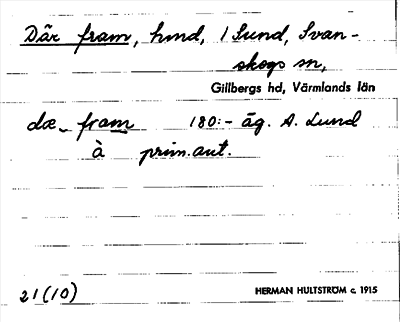 Där fram, hmd, 1 Sund, Svan-
skogs sn,
Gillbergs hd, Värmlands län
dæ_ fram 180:- äg. A. Lund
à prim.aut.
21(10) HERMAN HULTSTRÖM c. 1915